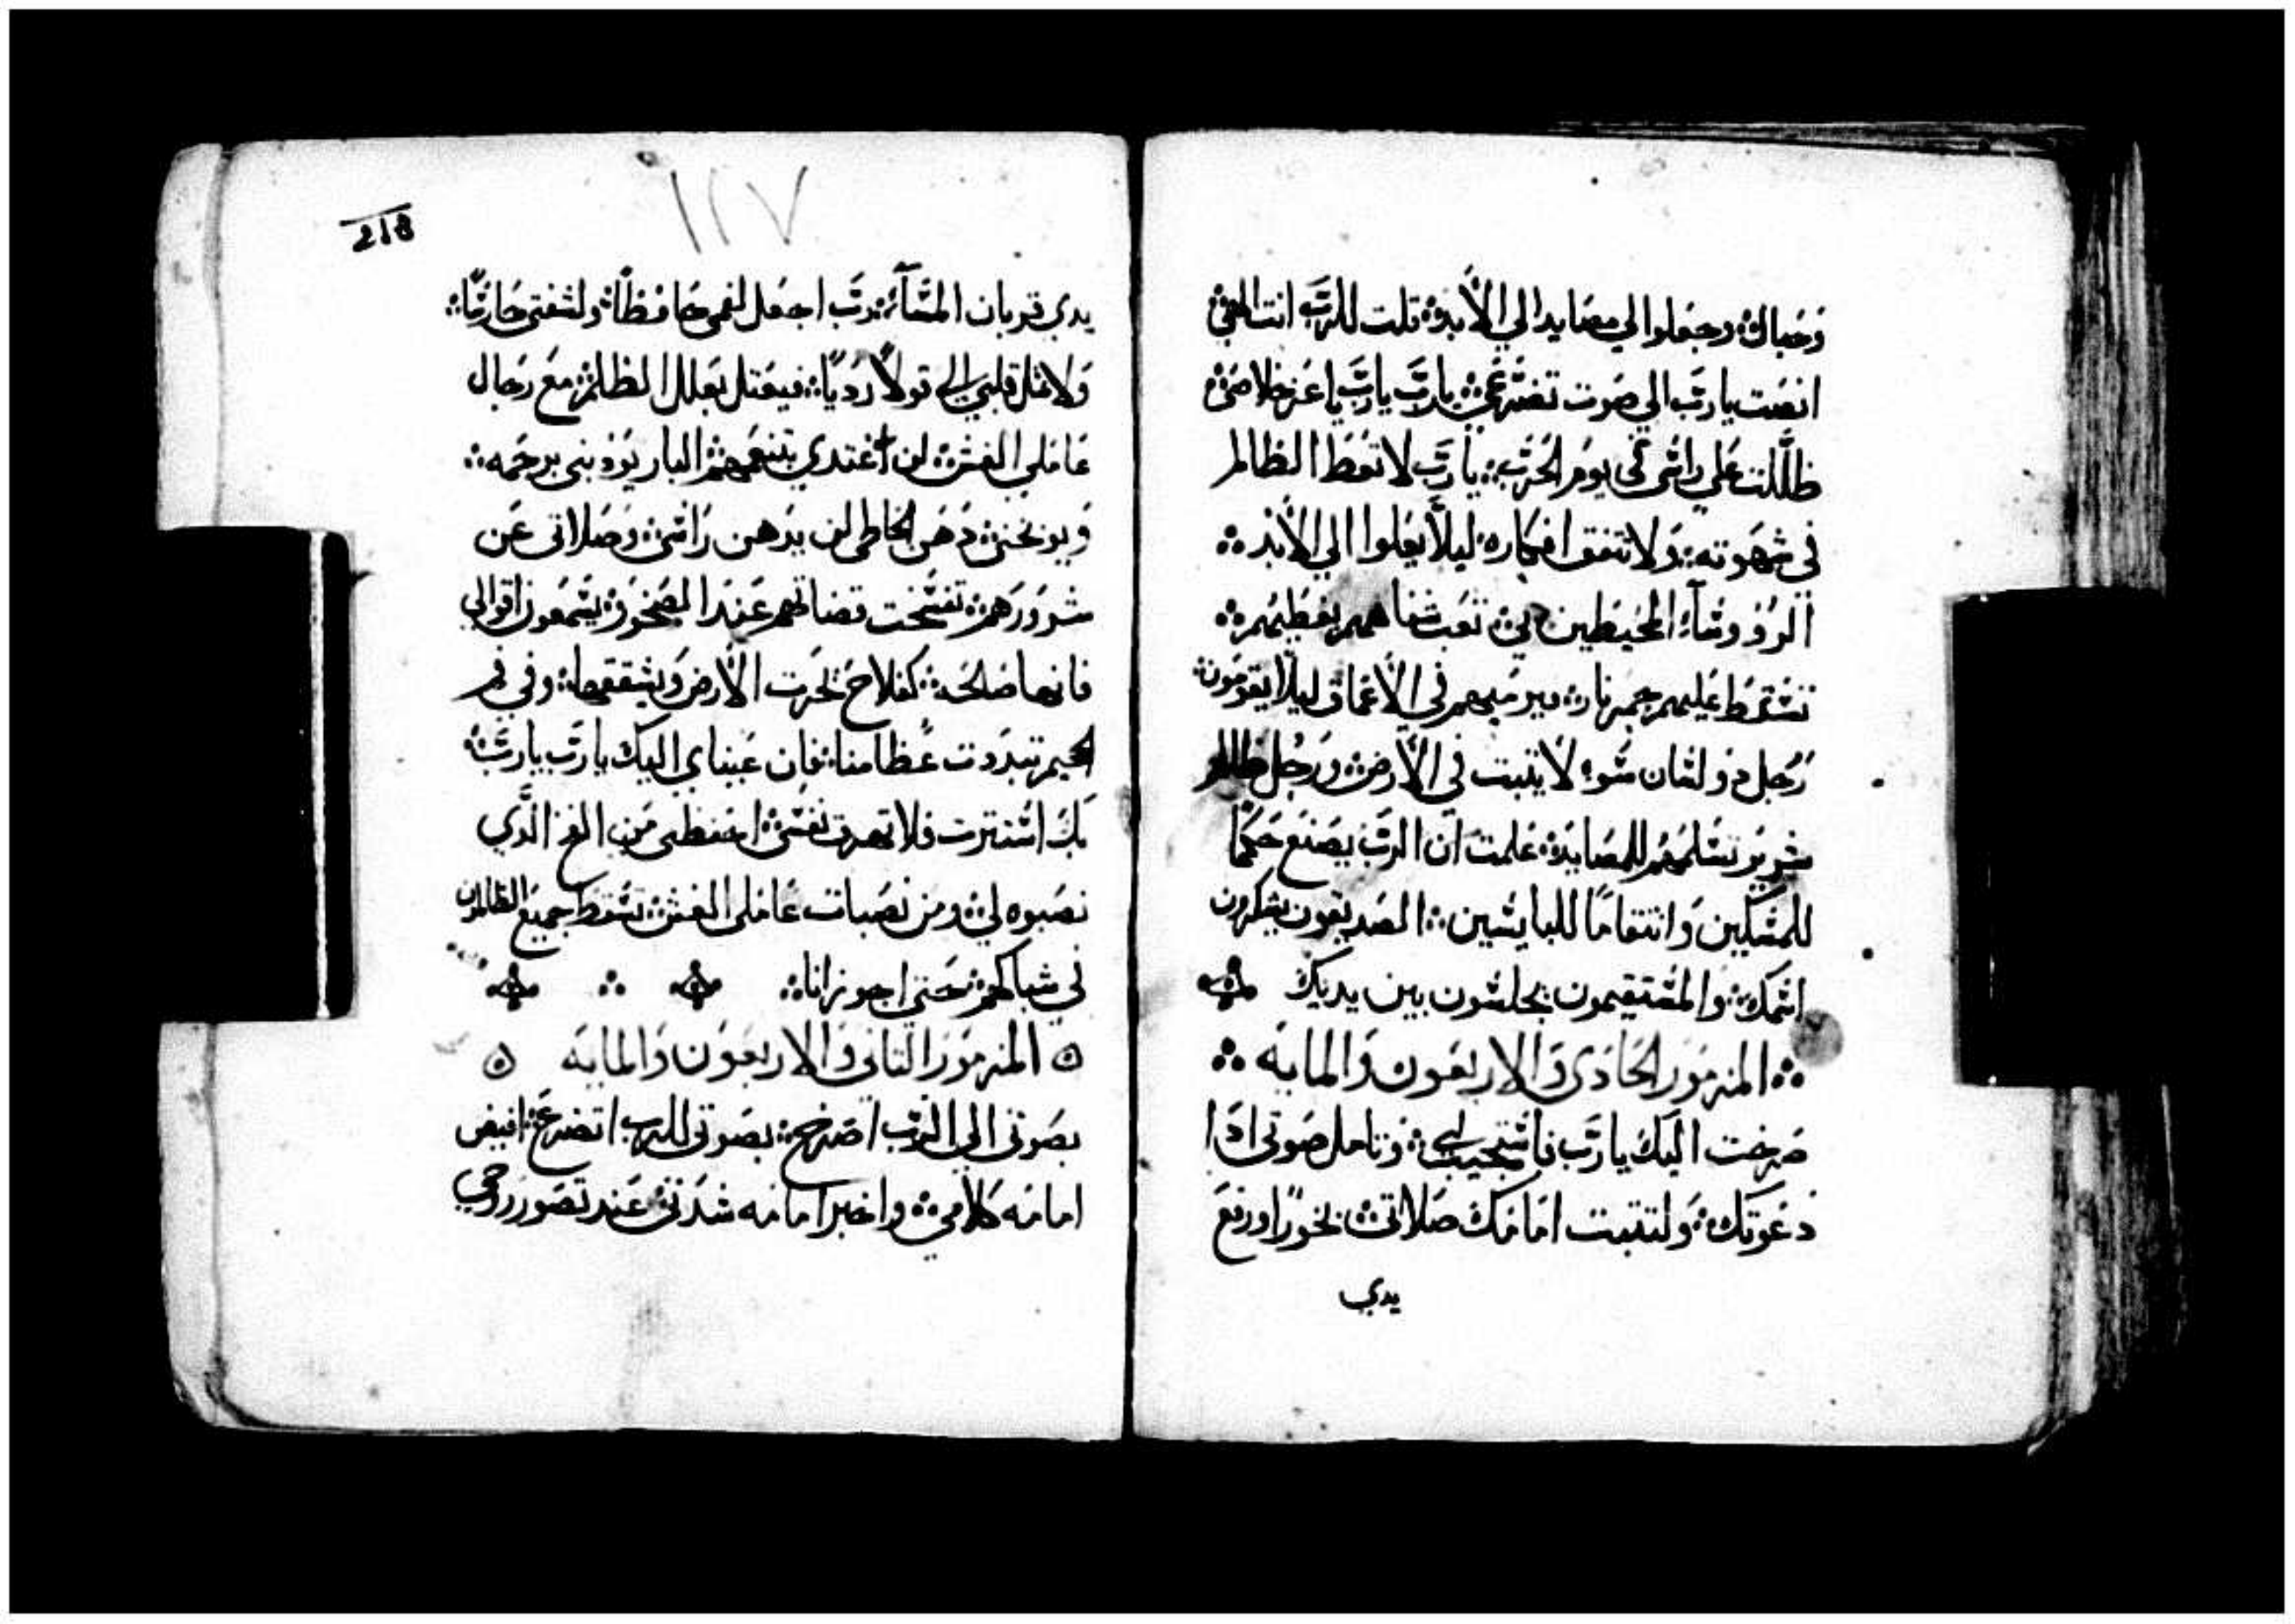 وَحبال؞ وجعَلوا لي مصَايد الي الأَبد؞ قلت للرَبّ انت الهيَ؞
انصَت يا رَبّ الي صَوت تضَرّعيَ؞ يا رَبّ يا رَبّ يا عَز خلاصَي؞
ظلَّلت عَلي راسَي في يومَ الحَربَ؞ يا رَبّ لا تعَط الظالم
في شهَوته؞ وَلا تتفق افكاره؞ ليلاَّ يعَلوا الي الأَبد؞
الروؤسَآء المحَيطين بي؞ تعَب شفاههم يغَطيهَم؞
تسَّقط عَليهم جمَر نار؞ ويرميهم في الأَعَماق ليلاَ يقومَون؞
رَجُل ذو لسَان سَوء لاَ يثبت في الأَرض؞ ورَجُل ظالم
شرير تسَلمهَم للمصَايد؞ عَلمت آن الرَبّ يصَنع حَكمًا
للمسَكين وَانتقامًا للبايسَين؞ الصَديقون يشكرون
اسَمك؞ والمسَتقيمون يجلسَون بين يديك
؞ المزمَور الحَادَي وَالاربعَون وَالمايَه ؞
صَرخت اليَك يا رَبّ فاسَتجيب لي؞ وَتامل صَوتي اذَا
دَعَوتك؞ وَلتثبت امَامَك صَلاتي؞ بخورًا ورفعَ
يدي
١١٧
218
يدي قربان المسَآء؞ رَبّ اجعَل لفمي حَافظًا؞ ولشفتي حَارسًا؞
وَلا تمل قلبي الي قولاً رَديًا؞ فيعَتل بعَلل الظلم؞ مَع رَجال
عَاملي الغش؞ لن اغتدي بتنعمَهم؞ البار يوَدبني برحمَه؞
وَيوبخني؞ دَهَن الخاطي لن يدَهن رَاسَي؞ وَصَلاتي عَن
شرورَهم؞ تفسَخت قضاتهم عَند الصَخور؞ يسَمعَون اقوالي
فانها صَالحَه؞ كفلاحَ يحَرت الأَرض وَيشققها؞ وفي فم
الجحيم تبدَدت عَظامنا؞ فان عَيناي اليك يا رَبّ يا رَبّ؞
بَك اسَتترت فلا تهدرَ نفسَي؞ احَفظني مَن الفخ الذَّي
نصَبوه لي؞ ومن نصَبات عَاملي الغش؞ تسَقط جميعَ الظالمون
في شباكهم؞ حَتي اجوز انا؞
المزمَور التاني وَالاربعَون وَالمايَه
بصَوتي الي الرَبّ اصَرخ؞ بصَوتي للرب اتضرعَ؞ افيض
امامَه كَلامي؞ واخبر امامَه شدَتي؞ عَند تصَور روحَي